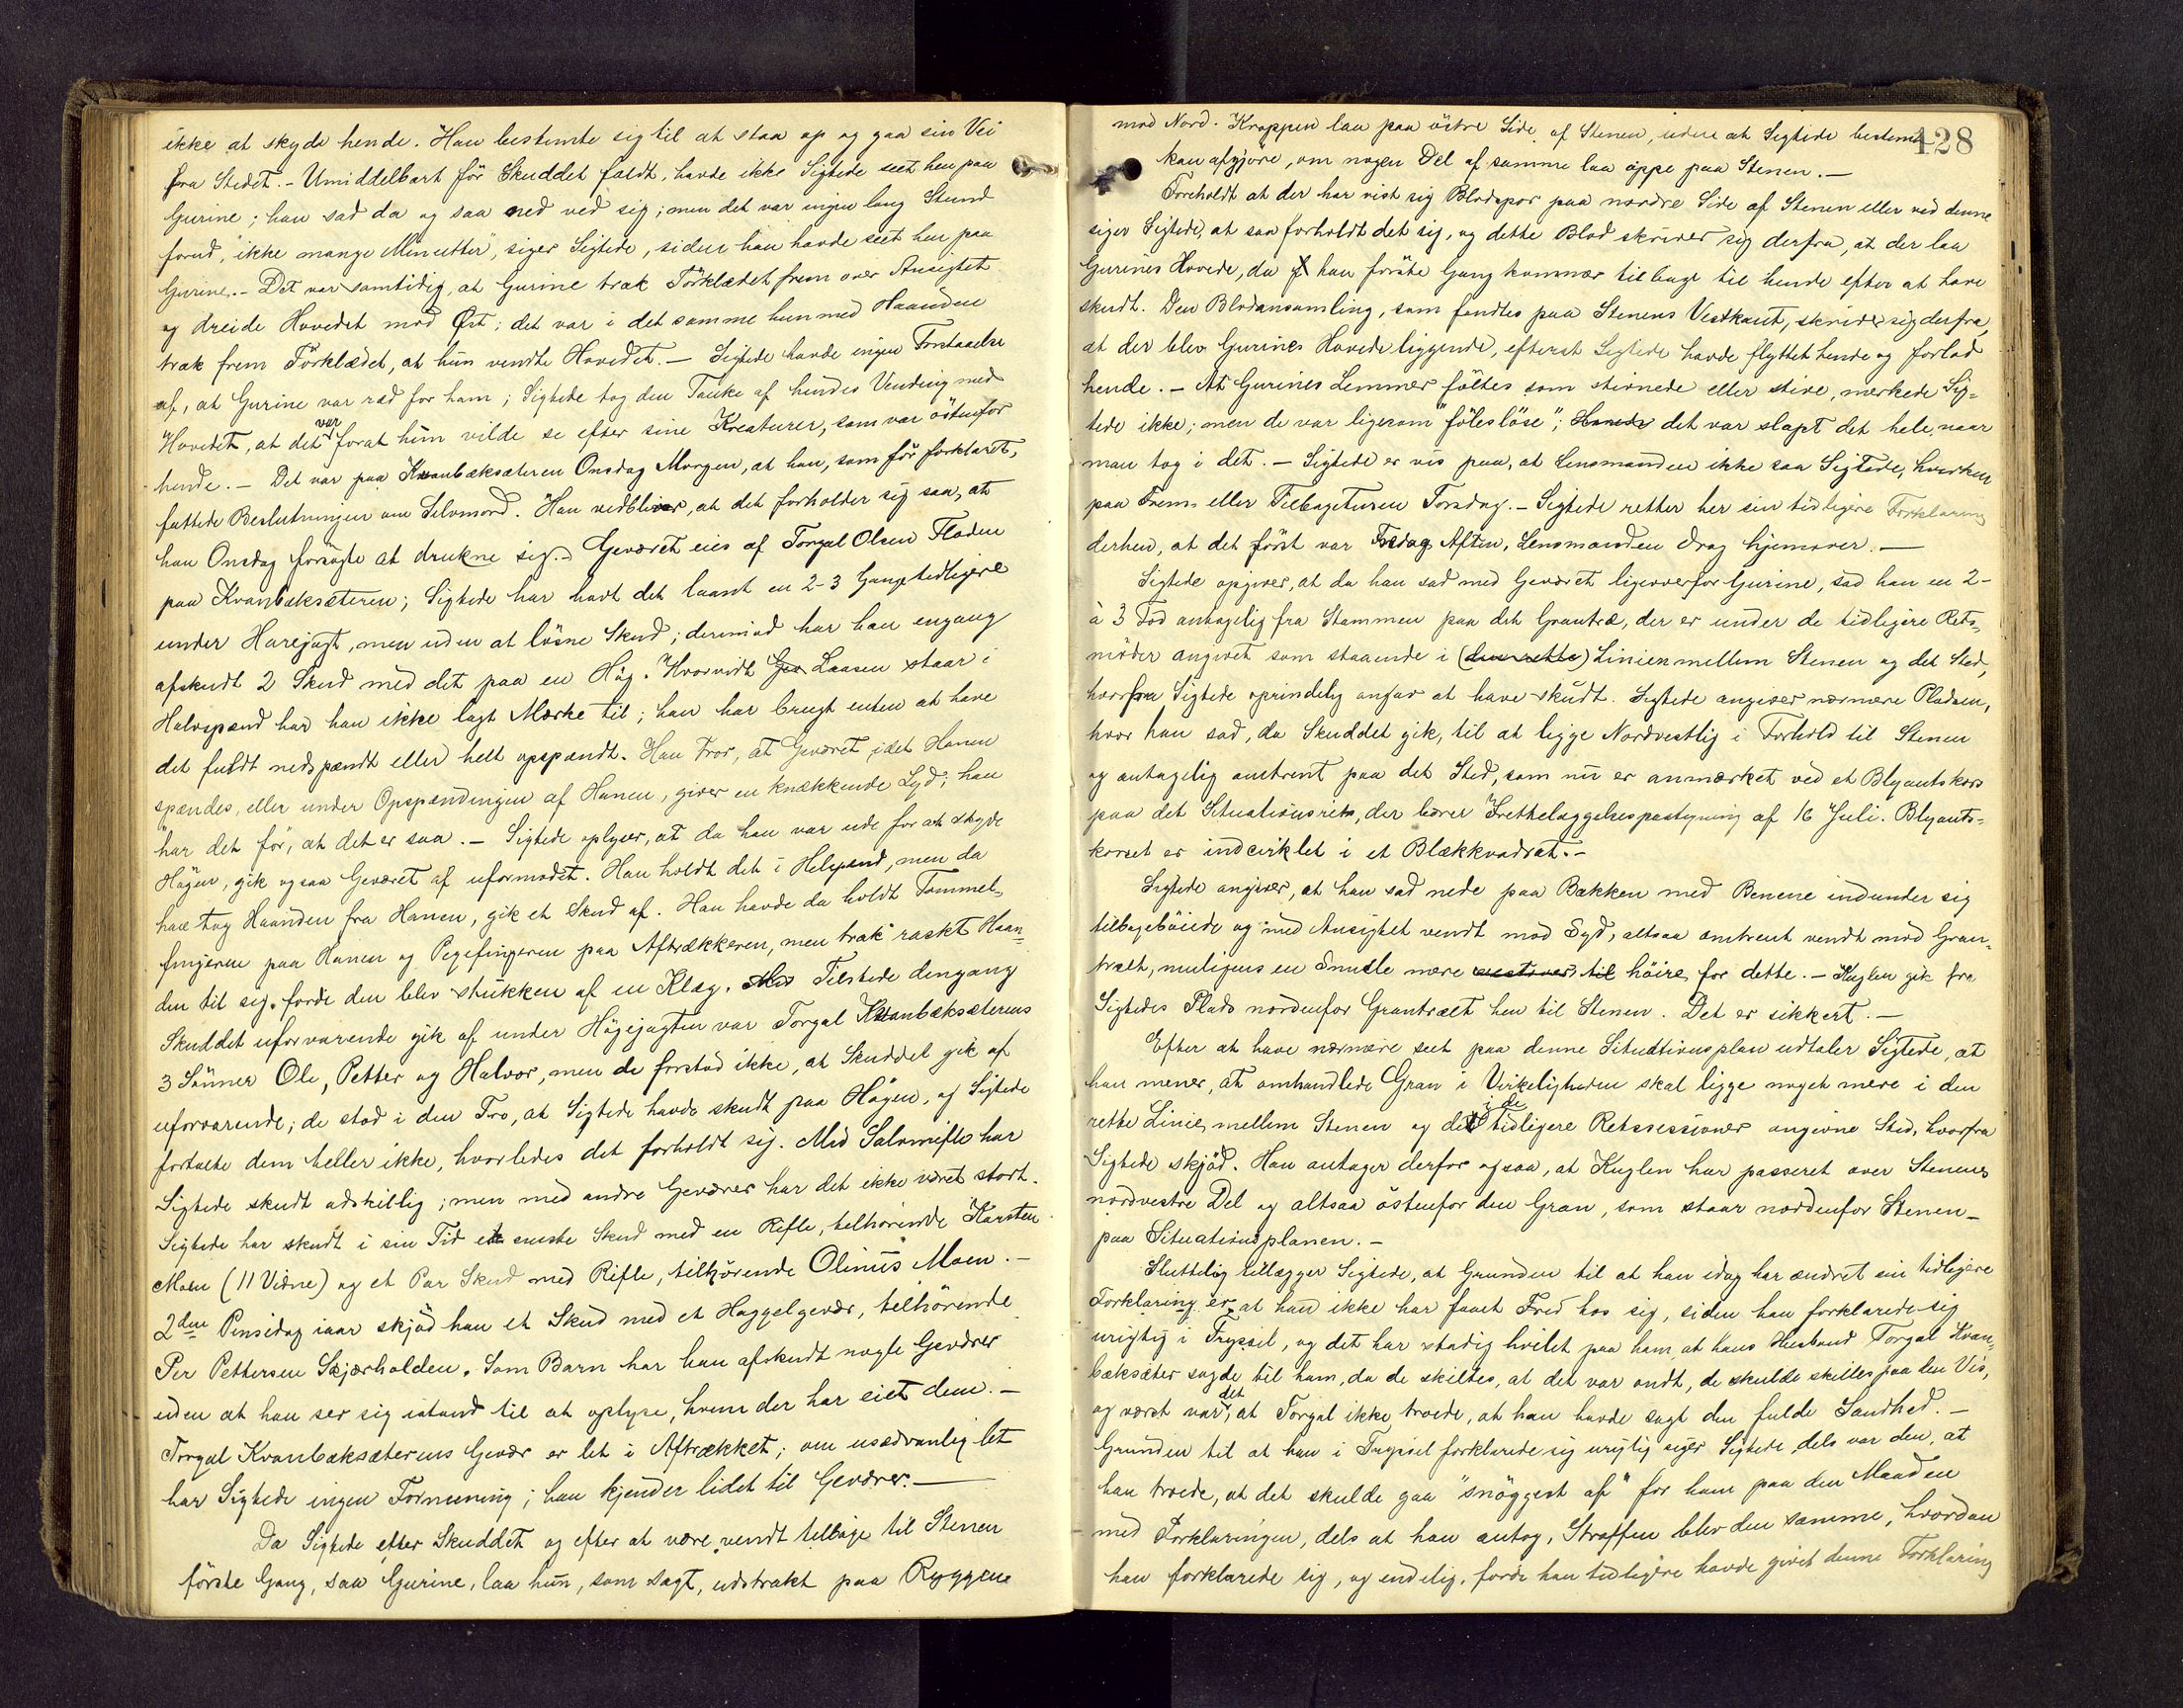 ikke at skyde hende. Han bestemte sig til at staa op og gaa sin Vei
fra Stedet. - Umiddelbart för Skuddet faldt, havde ikke Sigtede seet hen paa
Gurine; han sad da og saa ned ved sig; men det var ingen lang Stund
forud, "ikke mange Minutter", siger Sigtede, siden han havde seet hen paa
Gurine. - Det var samtidig, at Gurine trak Törklædet frem over Ansigtet
og dreide Hovedet mod Øst; det var i det samme hun med Haanden
trak frem Törklædet, at hun vendte Hovedet. - Sigtede havde ingen Forstaaelse
af, at Gurine var ræd for ham; Sigtede tog den Tanke af hendes Vending med
Hovedet, at det var forat hun vilde se efter sine Kreaturer, som var östenfor
hende. - Det var paa Kvanbæksæteren Onsdag Morgen, at han, som för forklaret,
fattede Beslutningen om Selvmord. Han vedbliver, at det forholder sig saa, at
han Onsdag forsøgte at drukne sig. - Geværet eies af Torgal Olsen Floden
paa Kvanbæksæteren; Sigtede har havt det laant en 2-3 Gange tidligere
under Harejagt, men uden at lösne Skud; derimod har han engang
afskudt 2 Skud med det paa en Høg. Hvorvidt Gev Laasen staar i
Halvspænd har han ikke lagt Mærke til; han har brugt enten at have
det fuldt nedspændt eller helt opspændt. Han tror, at Geværet, idet Hanen
spændes, eller under Opspændingen af Hanen, giver en knækkende Lyd; han
"har det för", at det er saa. - Sigtede oplyser, at da han var ude for at skyde
Högen, gik ogsaa Geværet af uformodet. Han holdt det i Helspænd, men da
han tog Haanden fra Hanen, gik et Skud af. Han havde da holdt Tommel-
fingeren paa Hanen og Pegefingeren paa Aftrækkeren, men trak raskt Haan-
den til sig, fordi den blev stukken af en Klæg. Med Tilstede dengang
Skuddet uforvarende gik af under Högejagten var Torgal Kvanbæksæterens
3 Sönner Ole, Petter og Halvor, men de forstod ikke, at Skuddet gik af
uforvarende; de stod i den Tro, at Sigtede havde skudt paa Högen, og Sigtede
fortalte dem heller ikke, hvorledes det forholdt sig. Med Salonrifle har
Sigtede skudt adskillig; men med andre Geværer har det ikke været stort.
Sigtede har skudt i sin Tid et eneste Skud med en Rifle, tilhörende Karsten
Moen (11 Vidne) og et Par Skud med Rifle, tilhörende Olinus Moen. -
2den Pinsedag iaar skjöd han et Skud med et Haggelgevær, tilhörende
Per Pettersen Skjærholden. Som Barn har han afskudt nogle Geværer
uden at han ser sig istand til at oplyse, hvem der har eiet dem. -
Torgal Kvanbæksæterens Gevær er let i Aftrækket; om usædvanlig let
har Sigtede ingen Formening; han kjender lidet til Geværer. -
Da Sigtede efter Skuddet og efter at være vendt tilbage til Stenen
förste Gang, saa Gurine, laa hun, som sagt, udstrakt paa Ryggen
428
mod Nord. Kroppen laa paa östre Side af Stenen, uden at Sigtede bestemt
kan afgjöre, om nogen Del af samme laa oppe paa Stenen. -
Foreholdt at der har vist sig Blodspor paa nordre Side af Stenen eller ved denne
siger Sigtede, at saa forholdt det sig, og dette Blod skriver sig derfra, at der laa
Gurines Hovede, da han förste Gang kommer tilbage til hende efter at have
skudt. Den Blodansamling, som fandtes paa Stenens Vestkant, skriver sig derfra,
at der blev Gurines Hovede liggende, efterat Sigtede havde flyttet hende og forlod
hende. - At Gurines Lemmer föltes som stivnede eller stive, mærkede Sig-
tede ikke; men de var ligesom "fölesløse"; Hænde det var slapt det hele, naar
man tog i det. - Sigtede er vis paa, at Lensmanden ikke saa Sigtede, hverken
paa Frem- eller Tilbageturen Torsdag. - Sigtede retter her sin tidligere Forklaring
derhen, at det först var Fredag Aften, Lensmanden drog hjemover. -
Sigtede opgiver, at da han sad med Geværet ligeoverfor Gurine, sad han en 2-
à 3 Fod antagelig fra Stammen paa det Grantræ, der er under de tidligere Rets-
möder angivet som staaende i (den rette) Linien mellem Stenen og det Sted,
hvorfra Sigtede oprindelig angav at have skudt. Sigtede angiver nærmere Pladsen,
hvor han sad, da Skuddet gik, til at ligge Nordvestlig i Forhold til Stenen
og antagelig omtrent paa det Sted, som nu er anmærket ved et Blyantskors
paa det Situationsrids, der bærer Irettelæggelsespaategning af 16 Juli. Blyants-
korset er indcirklet i et Blækkvadrat. -
Sigtede angiver, at han sad nede paa Bakken med Benene indunder sig
tilbageböiede og med Ansigtet vendt mod Syd, altsaa omtrent vendt mod Gran-
træet, muligens en Smule mere til höire for dette. - Kuglen gik fra
Sigtedes Plads nordenfor Grantræet hen til Stenen. Det er sikkert. -
Efter at have nærmere seet paa denne Situationsplan udtaler Sigtede, at
han mener, at omhandlede Gran i Virkeligheden skal ligge noget mere i den
rette Linie mellem Stenen og det i de tidligere Retssessioner angivne Sted, hvorfra
Sigtede skjöd. Han antager derfor ogsaa, at Kuglen har passeret over Stenens
nordvestre Del og altsaa östenfor den Gran, som staar nordenfor Stenen -
paa Situationsplanen. -
Sluttelig tillægger Sigtede, at Grunden til at han idag har ændret sin tidligere
Forklaring er, at han ikke har faaet Fred hos sig, siden han forklarede sig
urigtig i Trysil, og det har stadig hvilet paa ham, at hans Husbond Torgal Kvan-
bæksæter sagde til ham, da de skiltes, at det var ondt, de skulde skilles paa den Vis,
og værst var det, at Torgal ikke troede, at han havde sagt den fulde Sandhed. -
Grunden til at han i Trysil forklarede sig urigtig siger Sigtede, dels var den, at
han troede, at det skulde gaa "snöggest af" for ham paa den Maaden
med Forklaringen, dels at han antog, Straffen blev den samme, hvordan
han forklarede sig, og endelig, fordi han tidligere havde givet denne Forklaring